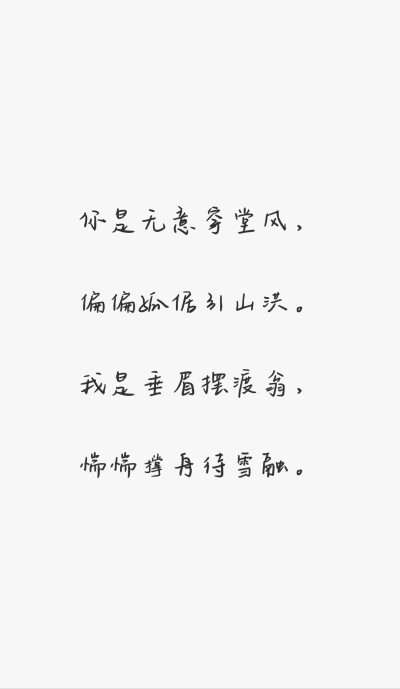 你是无意穿堂风,
偏偏孤倨引山洪。
我是垂眉摆渡翁,
惴惴撑舟待雪融。